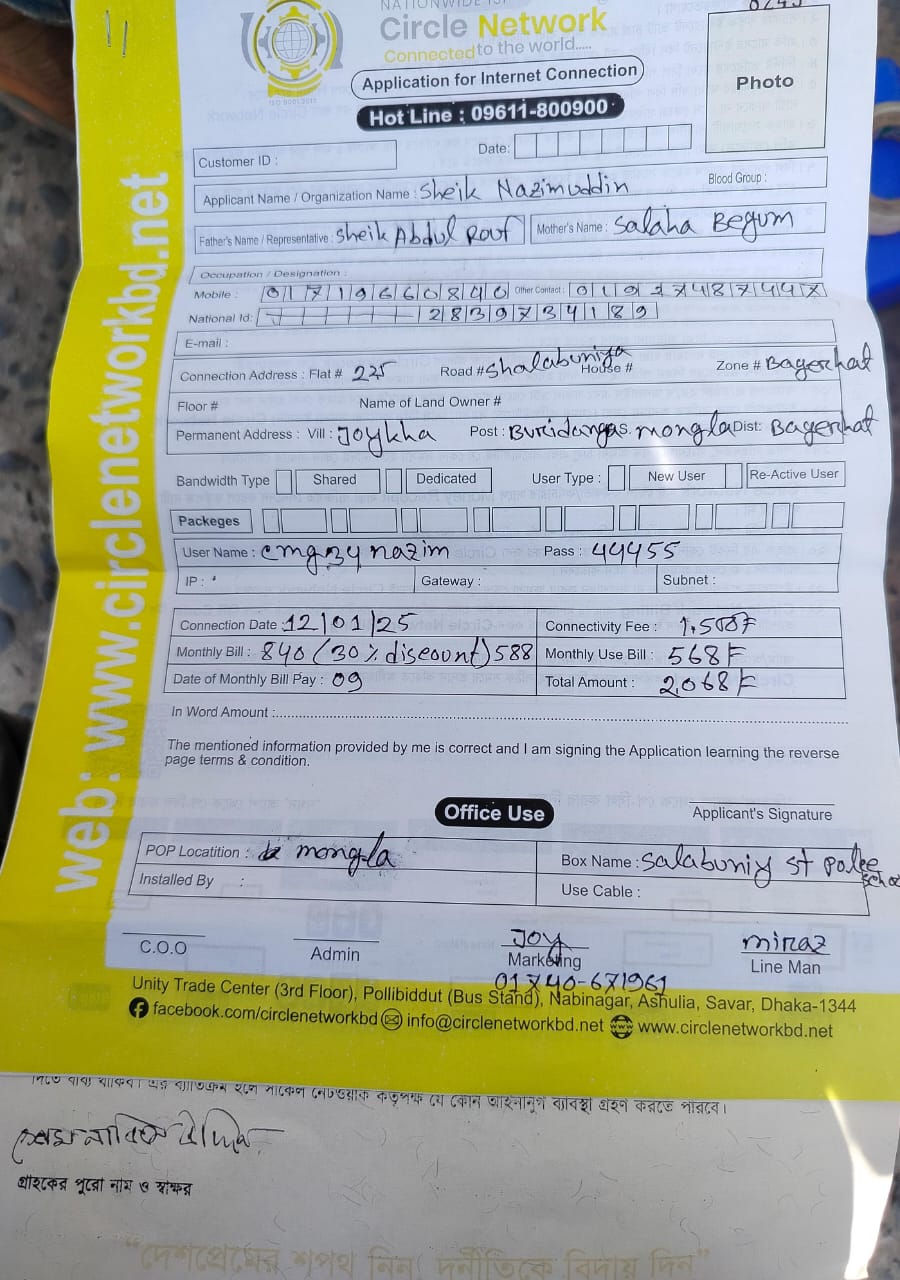 NATIONWIDE ISP
Circle Network
Connected to the world.....
ISO 9001:2015
Application for Internet Connection
Hot Line : 09611-800900
Photo
Customer ID :
Date:
Applicant Name / Organization Name : Sheik Nazimuddin
Blood Group :
Father's Name / Representative : Sheik Abdul Rouf
Mother's Name : Salaha Begum
Occupation / Designation :
Mobile : 01719660840 Other Contact :
National Id: 2839734189
E-mail :
Connection Address : Flat # 225 Road # Shalabuniya House # Zone # Bagerhat
Floor # Name of Land Owner #
Permanent Address : Vill : Joykha Post : Buridanga S. mongla Dist: Bagerhat
Bandwidth Type Shared Dedicated User Type : New User Re-Active User
Packeges
User Name : cmg34nazim Pass : 44455
IP : Gateway : Subnet :
Connection Date : 12/01/25 Connectivity Fee : 1,500৳
Monthly Bill : 840 (30% discount) 588 Monthly Use Bill : 568৳
Date of Monthly Bill Pay : 09 Total Amount : 2,068৳
In Word Amount :
The mentioned information provided by me is correct and I am signing the Application learning the reverse
page terms & condition.
Applicant's Signature
Office Use
POP Locatition : mongla Box Name : Salabuniy St Palee
Installed By : Use Cable :
Joy miraz
C.O.O Admin Marketing Line Man
01740-671961
Unity Trade Center (3rd Floor), Pollibiddut (Bus Stand), Nabinagar, Ashulia, Savar, Dhaka-1344
facebook.com/circlenetworkbd info@circlenetworkbd.net www.circlenetworkbd.net
web: www.circlenetworkbd.net
দিতে বাধ্য থাকিব। এর ব্যতিক্রম হলে সার্কেল নেটওয়ার্ক কতৃপক্ষ যে কোন আইনানুগ ব্যাবস্থা গ্রহণ করতে পারবে।
গ্রাহকের পুরো নাম ও স্বাক্ষর
“দেশপ্রেমের শপথ নিন, দুর্নীতিকে বিদায় দিন”